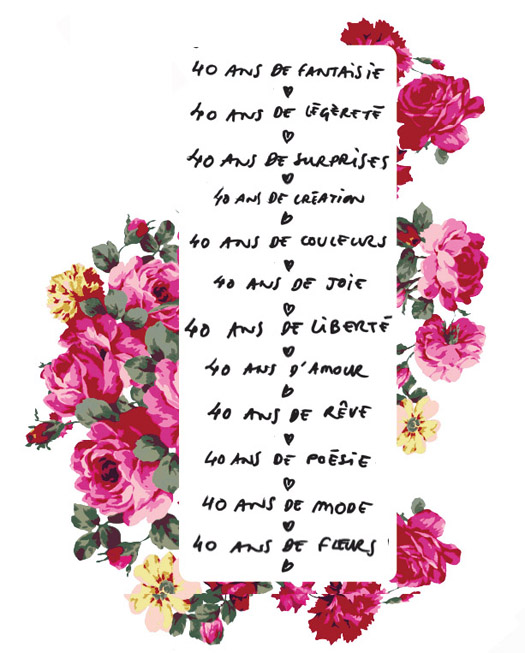 40 ANS DE FANTAISIE
40 ANS DE LÉGÈRETÉ
40 ANS DE SURPRISES
40 ANS DE CRÉATION
40 ANS DE COULEURS
40 ANS DE JOIE
40 ANS DE LIBERTÉ
40 ANS D'AMOUR
40 ANS DE RÊVE
40 ANS DE POÉSIE
40 ANS DE MODE
40 ANS DE FLEURS